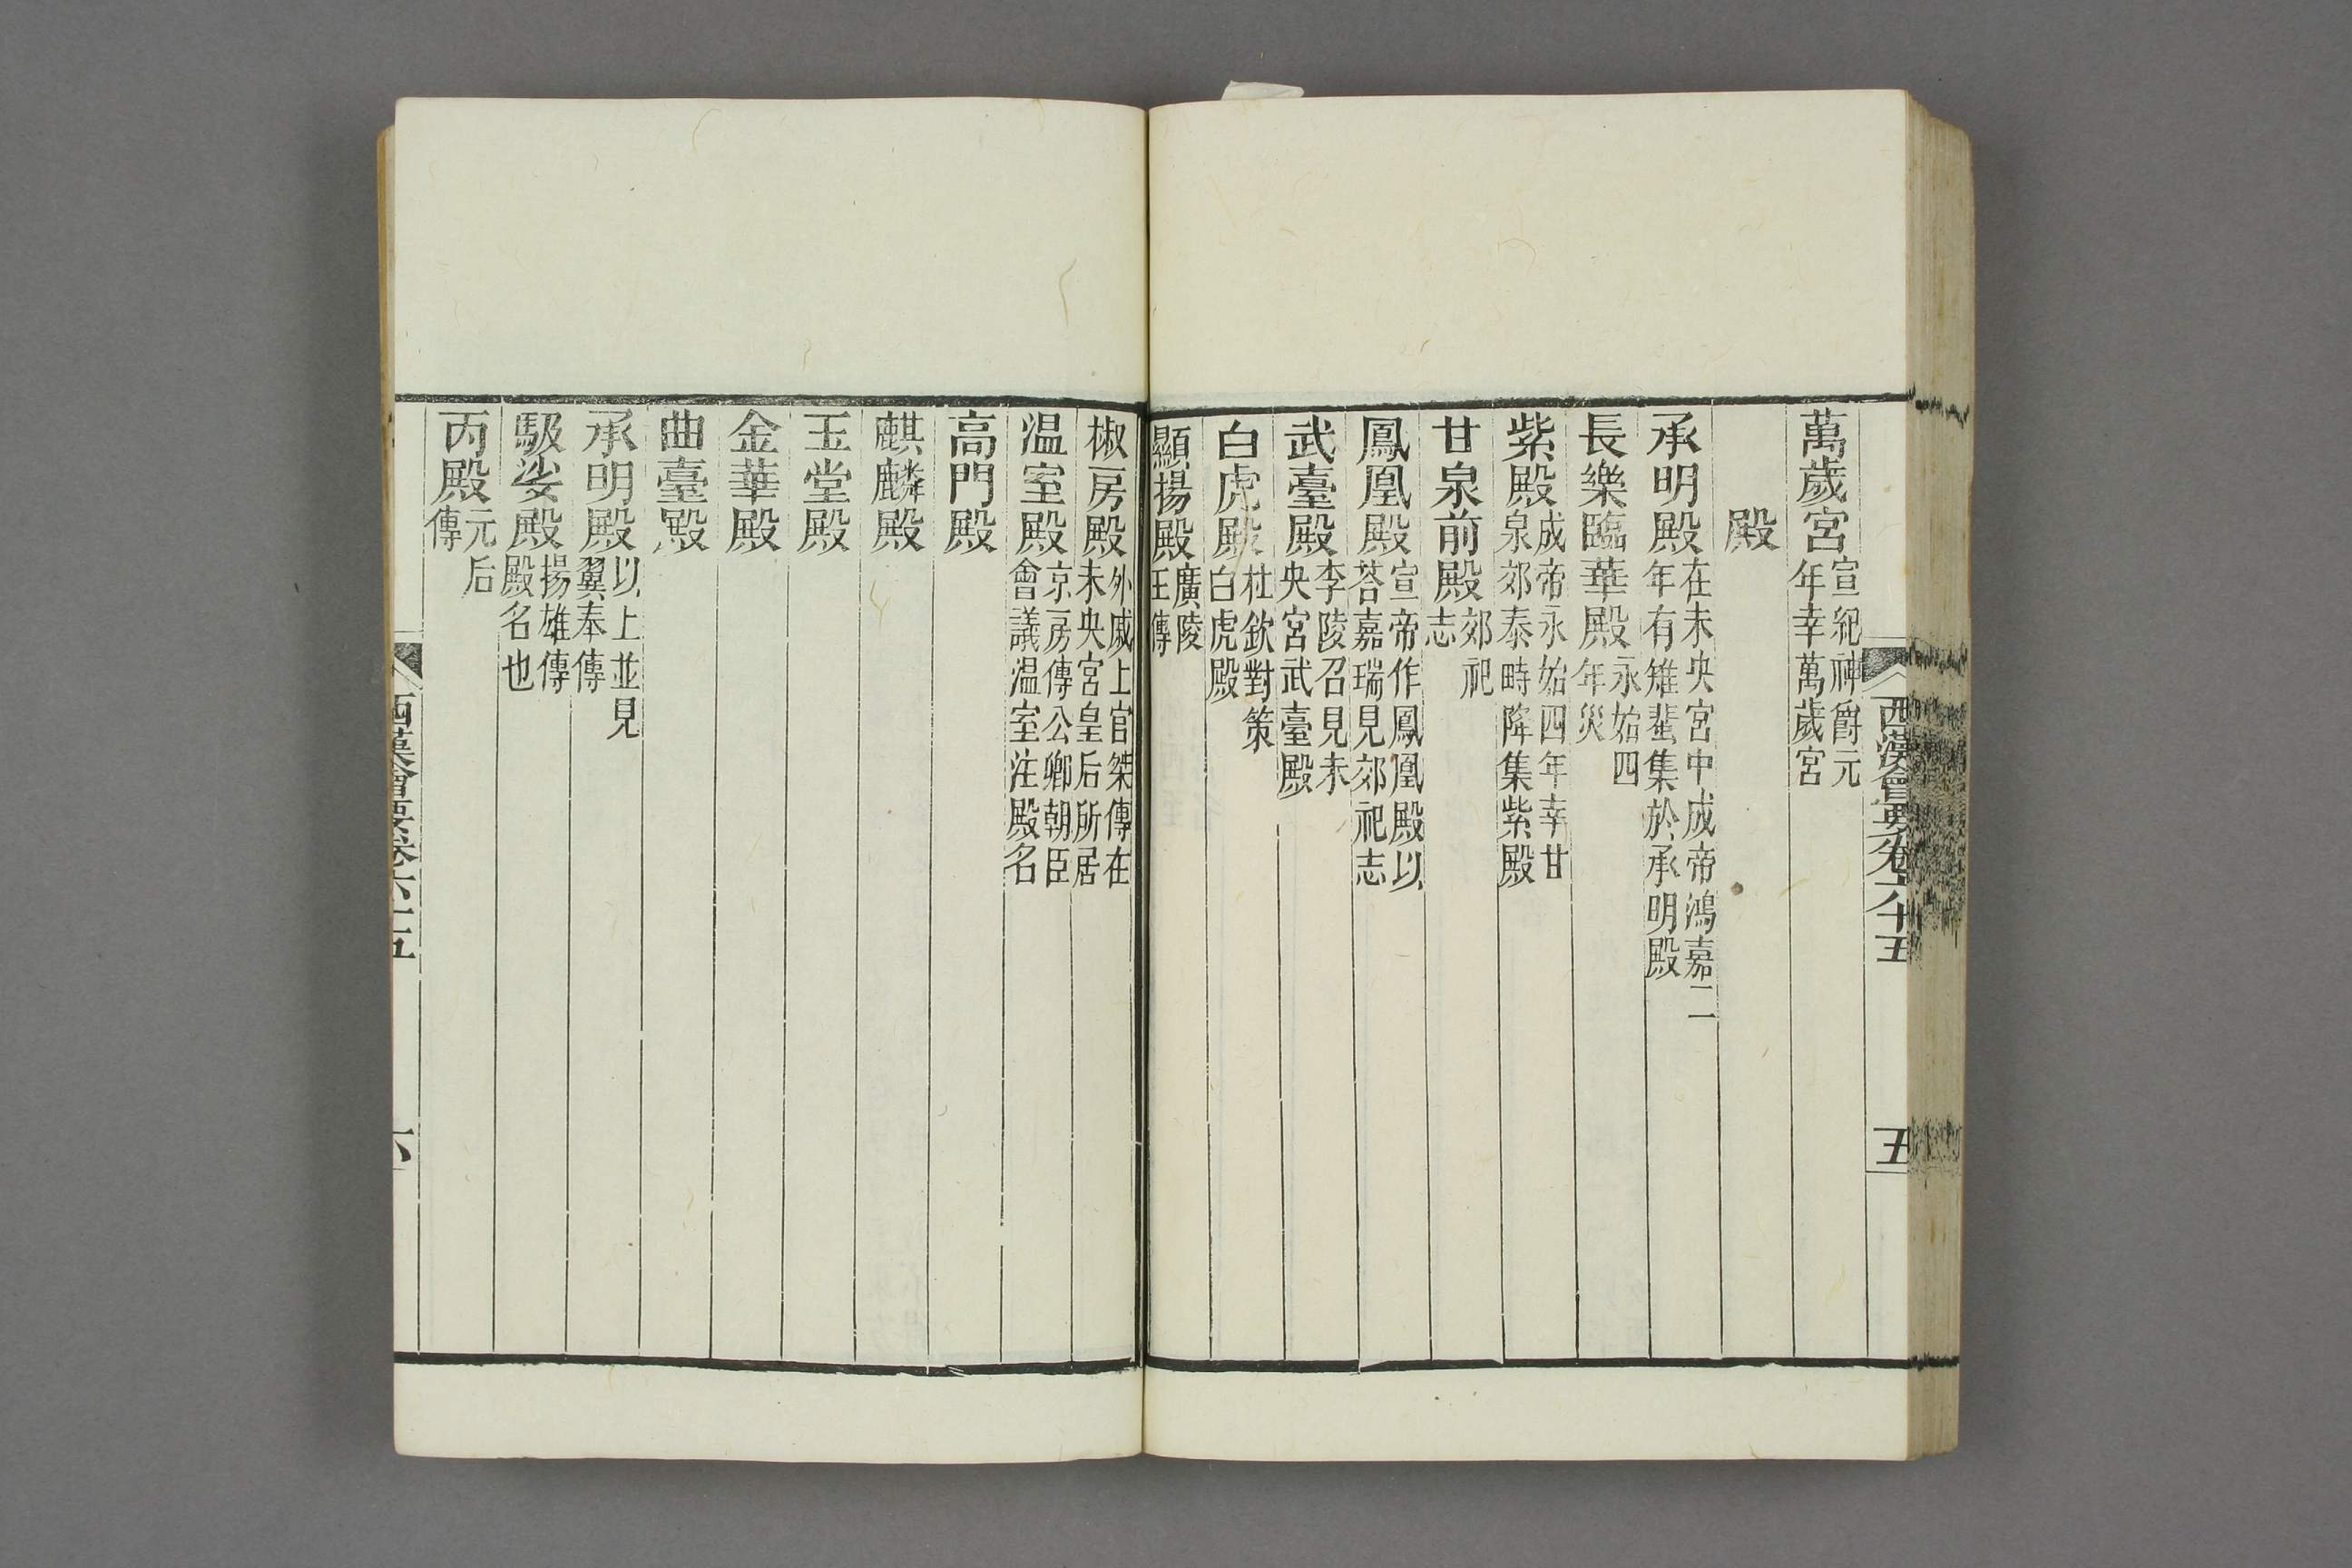 西漢會要卷六十五
五
萬歲宮宣紀神爵元年幸萬歲宮
殿
承明殿在未央宮中成帝鴻嘉二年有雉蜚集於承明殿
長樂臨華殿永始四年災
紫殿成帝永始四年幸甘泉郊泰畤降集紫殿
甘泉前殿郊祀志
鳳凰殿宣帝作鳳凰殿以荅嘉瑞見郊祀志
武臺殿李陵召見未央宮武臺殿
白虎殿杜欽對策白虎殿
顯揚殿廣陵王傳
椒房殿外戚上官桀傳在未央宮皇后所居
温室殿京房傳公卿朝臣會議温室注殿名
高門殿
麒麟殿
玉堂殿
金華殿
曲臺殿
承明殿以上並見翼奉傳
馺娑殿揚雄傳殿名也
丙殿元后傳
西漢會要卷六十五
六